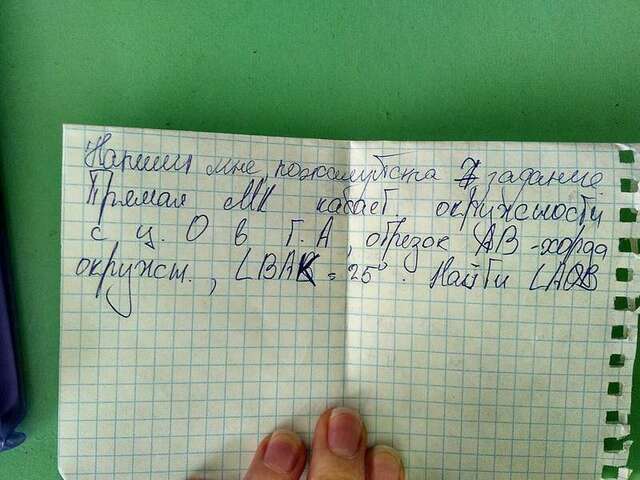 Напиши мне, пожалуйста 7 задание
Прямая МК касает. окружности
с ц. О в т. А, отрезок АВ - хорда
окружн., ∠ВАК = 25°. Найти ∠АОВ